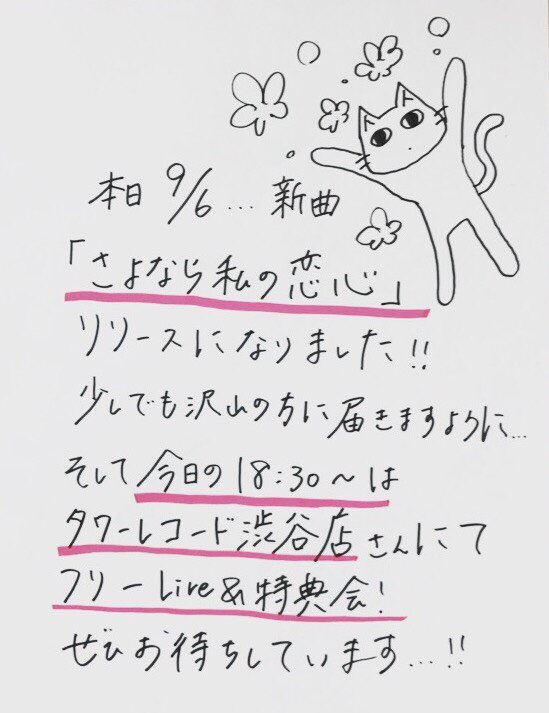 本日 9/6... 新曲
「さよなら私の恋心」
リリースになりました!!
少しでも沢山の方に届きますように...
そして今日の18:30〜は
タワーレコード渋谷店さんにて
フリーLive&特典会!
ぜひお待ちしています...!!